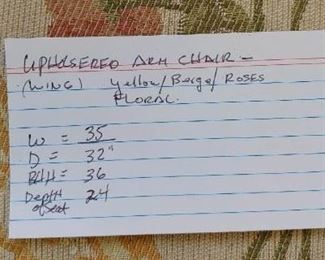 UPHOLSERED ARM CHAIR -
(WING) Yellow/Barge/ROSES
FLORAL.
W = 35
D = 32"
BHH = 36
Depth 24
of seat